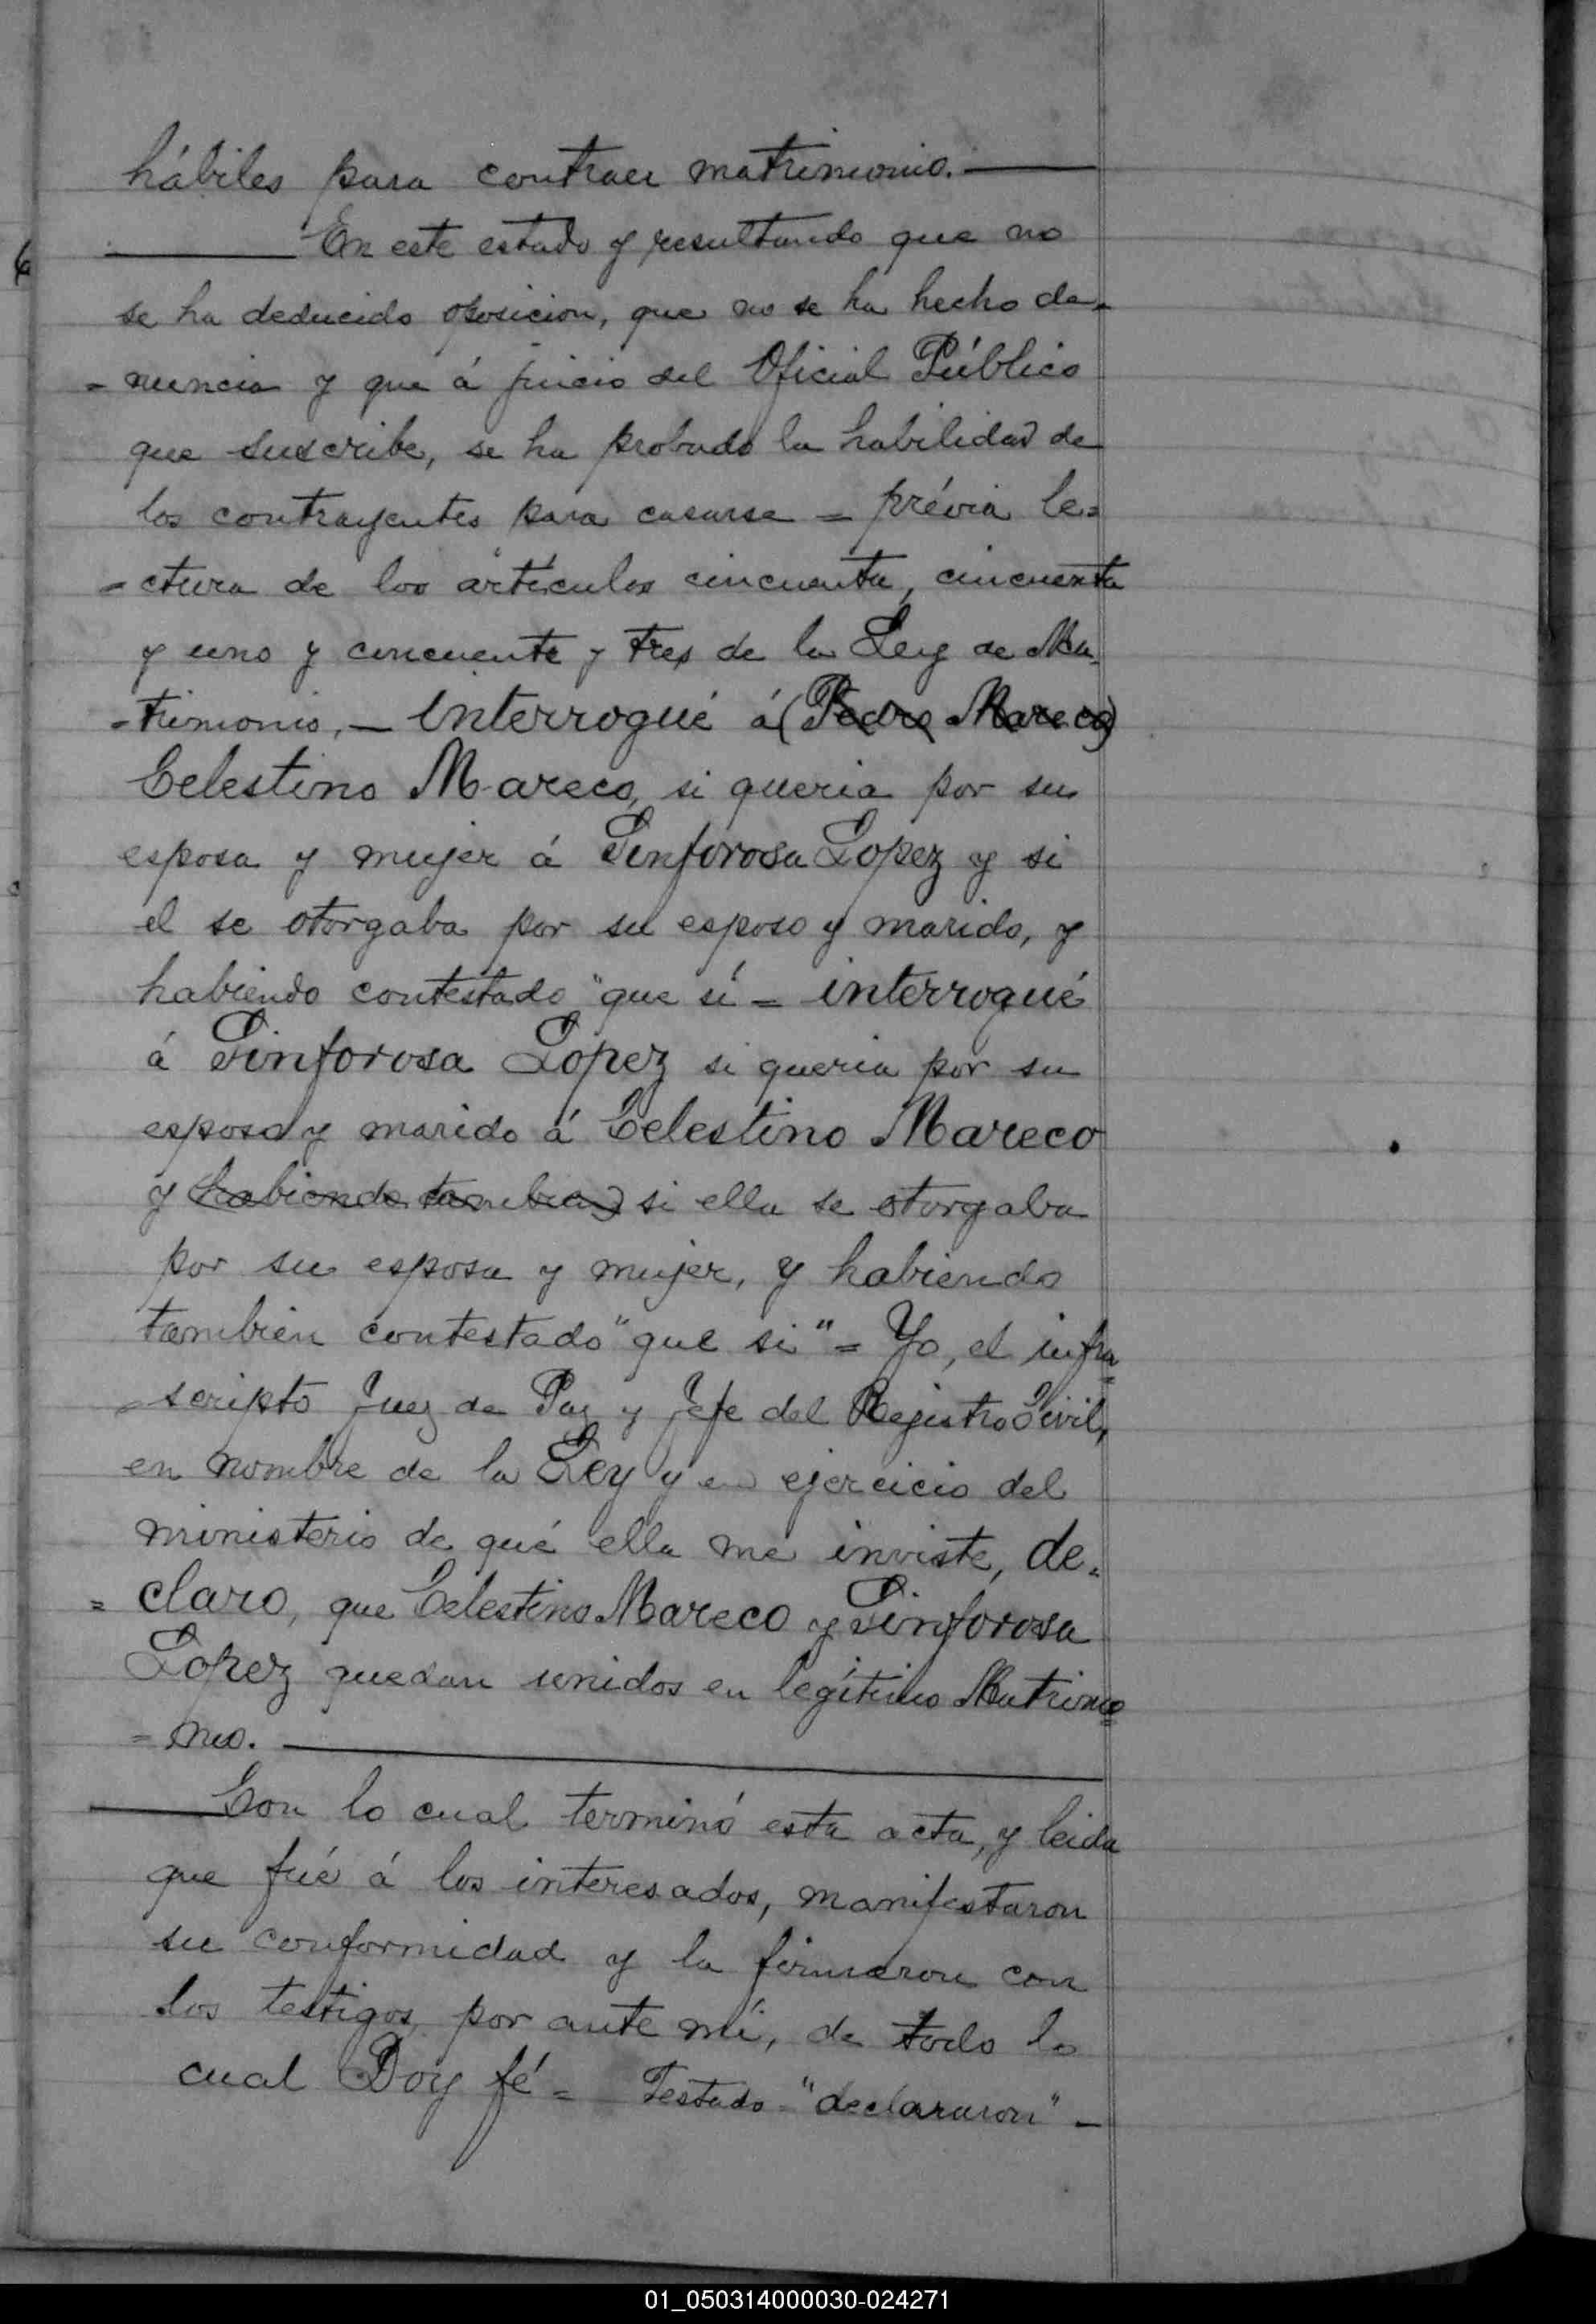 hábiles para contraer matrimonio. ——
—— En este estado y resultando que no
se ha deducido oposicion, que no se ha hecho de=
= nuncia y que á juicio del Oficial Público
que suscribe, se ha probado la habilidad de
los contrayentes para casarse = prévia le=
= ctura de los artículos cincuenta, cincuenta
y uno y cincuenta y tres de la Ley de Ma=
= trimonio, — interrogué á (Pedro Mareco)
Celestino Mareco, si queria por su
esposa y mujer á Sinforosa Lopez y si
el se otorgaba por su esposo y marido, y
habiendo contestado "que sí = interrogué
á Sinforosa Lopez si queria por su
esposo y marido á Celestino Mareco
y (habiendo tambien) si ella se otorgaba
por su esposa y mujer, y habiendo
tambien contestado "que si" = Yo, el infra=
= scripto Juez de Paz y Jefe del Registro Civil,
en nombre de la Ley y en ejercicio del
ministerio de qué ella me inviste, de=
= claro, que Celestino Mareco y Sinforosa
Lopez quedan unidos en legítimo Matrimo=
= nio. ——
—— Con lo cual terminó esta acta, y leida
que fué á los interesados, manifestaron
su conformidad y la firmaron con
los testigos, por ante mí, de todo lo
cual Doy fé = Testado "declararon" —
01_050314000030-024271